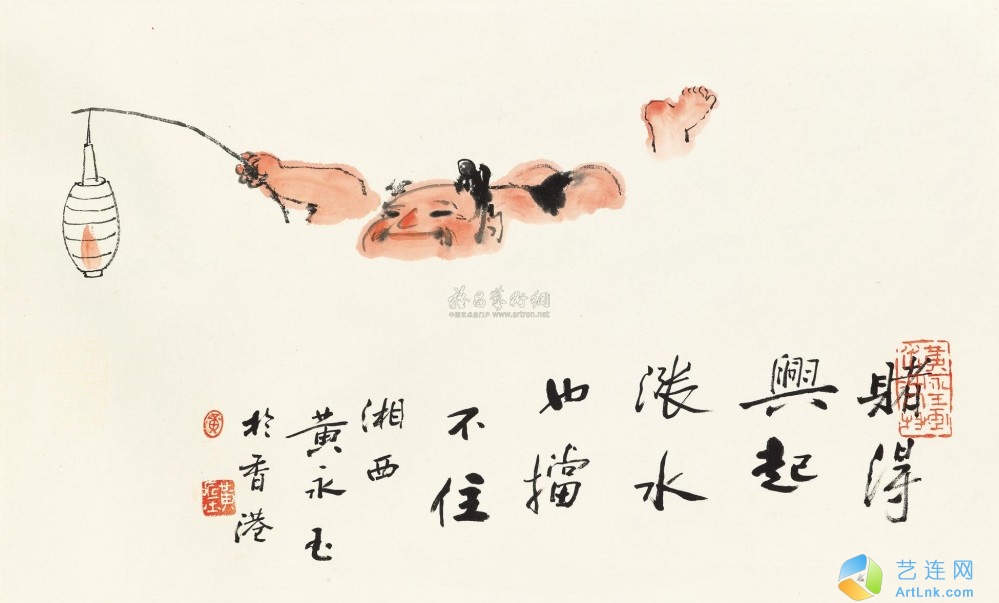 賭得
興起
漲水
也擋
不住
湘西
黄永玉
於香港
雅昌藝術網
中国艺术品门户 www.artron.net
艺连网
ArtLnk.com